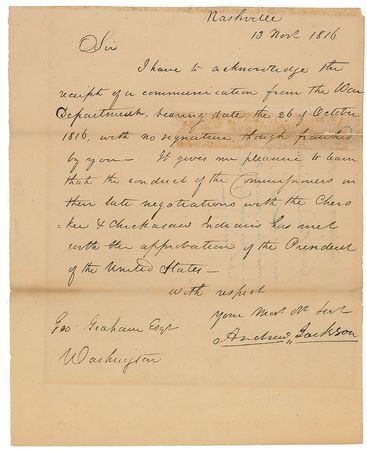 Nashville
13 Novr 1816
Sir
I have to acknowledge the
receipt of a communication from the War
Department, bearing date the 26 of October
1816, with no signature, though franked
by you — It gives me pleasure to learn
that the conduct of the Commissioners in
their late negotiations with the Chero
=kee & Chickasaw Indians has met
with the approbation of the President
of the United States —
with respect
your Most Obt Sert
Andrew Jackson
Geo. Graham Esqr
Washington